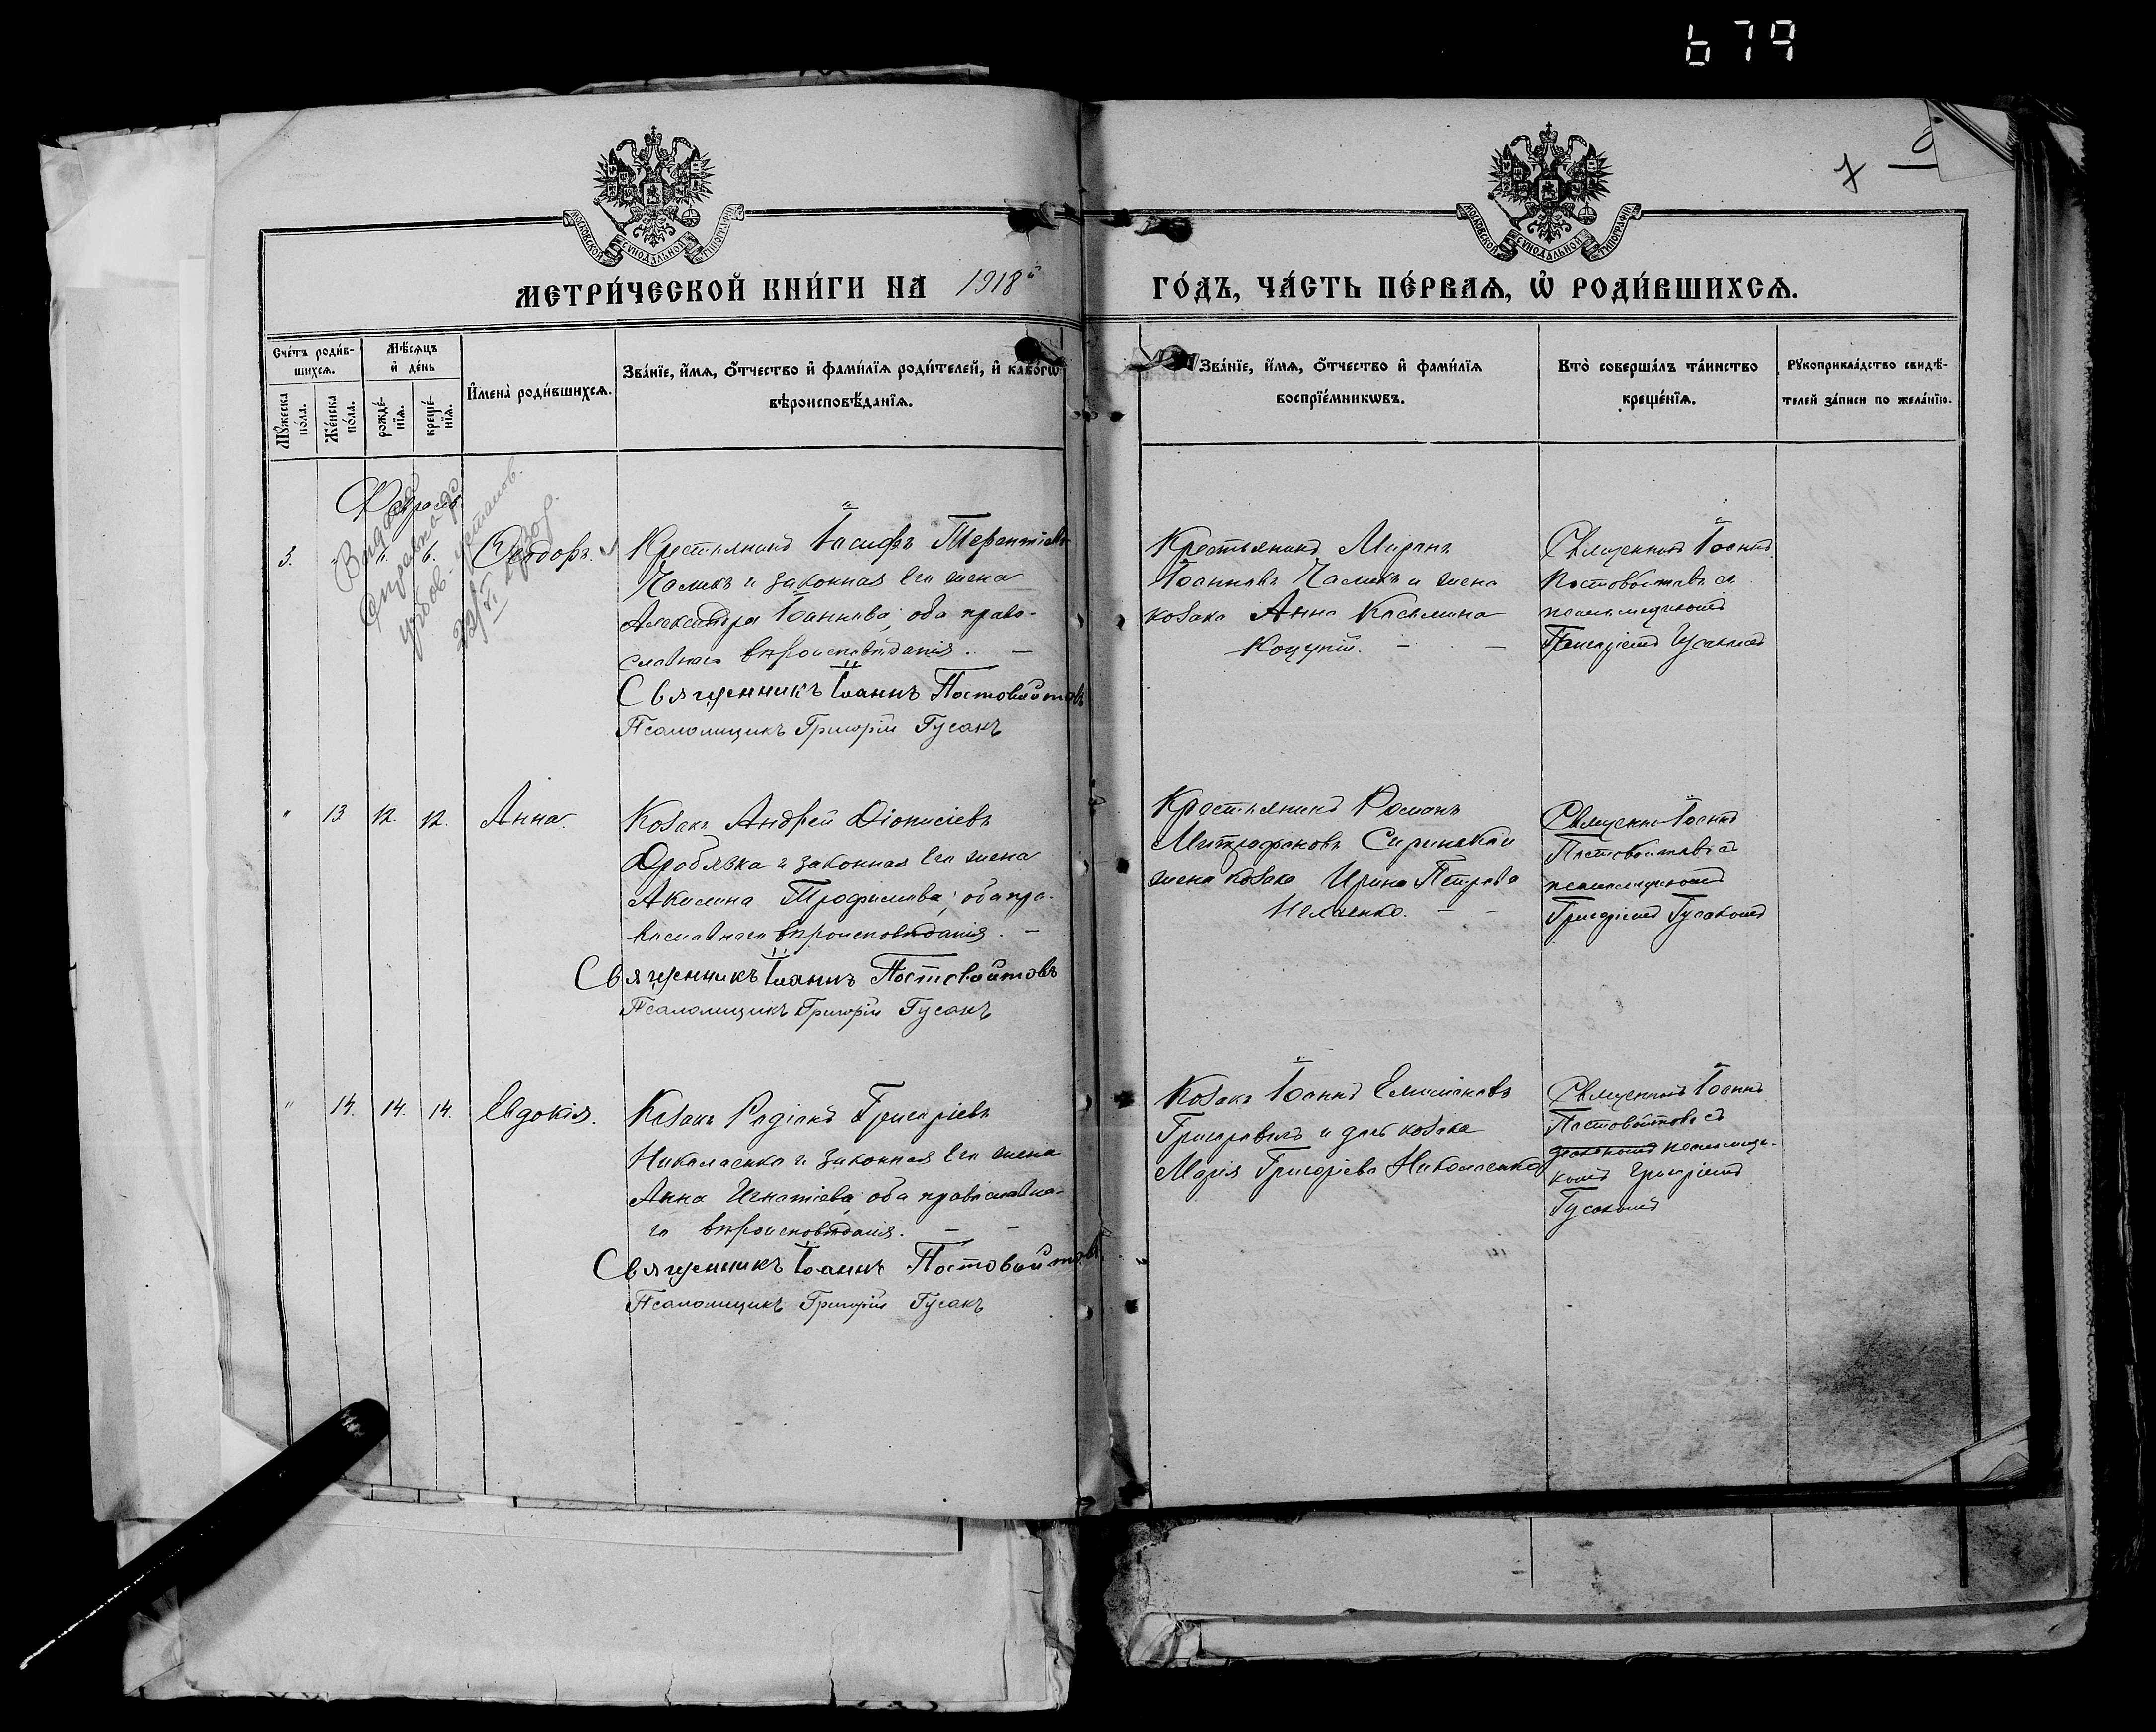 679
7
МОСКОВСКОЙ СѴНОДАЛЬНОЙ ТИПОГРАФІИ
МОСКОВСКОЙ СѴНОДАЛЬНОЙ ТИПОГРАФІИ
МЕТРИ́ЧЕСКОЙ КНИ́ГИ НА 1918й
ГО́ДЪ, ЧА́СТЬ ПЕ́РВАѦ, Ѡ҆ РОДИ́ВШИХСѦ.
Сче́тъ роди́в-
шихсѧ.
Мꙋ́жеска
по́ла.
Же́нска
по́ла.
Мѣ́сѧцъ
и҆ де́нь
рожде́-
нїѧ.
креще́-
нїѧ.
И҆мена̀ роди́вшихсѧ.
Зва́нїе, и҆́мѧ, ѻ҆́тчество и҆ фами́лїѧ роди́телей, и҆ како́гѡ
вѣроисповѣ́данїѧ.
Зва́нїе, и҆́мѧ, ѻ҆́тчество и҆ фами́лїѧ
воспрїе́мникѡвъ.
Кто̀ соверша́лъ та́инство
креще́нїѧ.
Рꙋкоприкла́дство свидѣ́-
телей за́писи по жела́нїю.
Февраль
Выдана
справка
3. " 6. Ѳеодоръ.
Крестьянинъ Іосифъ Терентіевъ
Чалыкъ и законная его жена
Александра Іоаннова, оба право-
славнаго вѣроисповѣданія. —
Священникъ Іоаннъ Постовойтовъ
Псаломщикъ Григорій Гусакъ
Крестьянинъ Миронъ
Іоанновъ Чалыкъ и жена
козака Анна Касьянова
Коцупій. — —
Священникъ Іоаннъ
Постовойтовъ съ
псаломщикомъ
Григоріемъ Гусакомъ
" 13 12. 12. Анна.
Козакъ Андрей Діонисіевъ
Дробязка и законная его жена
Акилина Трофимова, оба пра-
вославнаго вѣроисповѣданія. —
Священникъ Іоаннъ Постовойтовъ
Псаломщикъ Григорій Гусакъ
Крестьянинъ Романъ
Митрофановъ
жена козака Ирина Петрова
Священникъ Іоаннъ
Постовойтовъ съ
псаломщикомъ
Григоріемъ Гусакомъ
" 14. 14. 14. Евдокія.
Козакъ Родіонъ Григоріевъ
Николаенко и законная его жена
Анна Игнатіева, оба православна-
го вѣроисповѣданія. — —
Священникъ Іоаннъ Постовойтовъ
Псаломщикъ Григорій Гусакъ
Козакъ Іоаннъ Емиліановъ
и дочь козака
Марія Григоріева Николаенкова
Священникъ Іоаннъ
Постовойтовъ съ
псаломщи-
комъ Григоріемъ
Гусакомъ